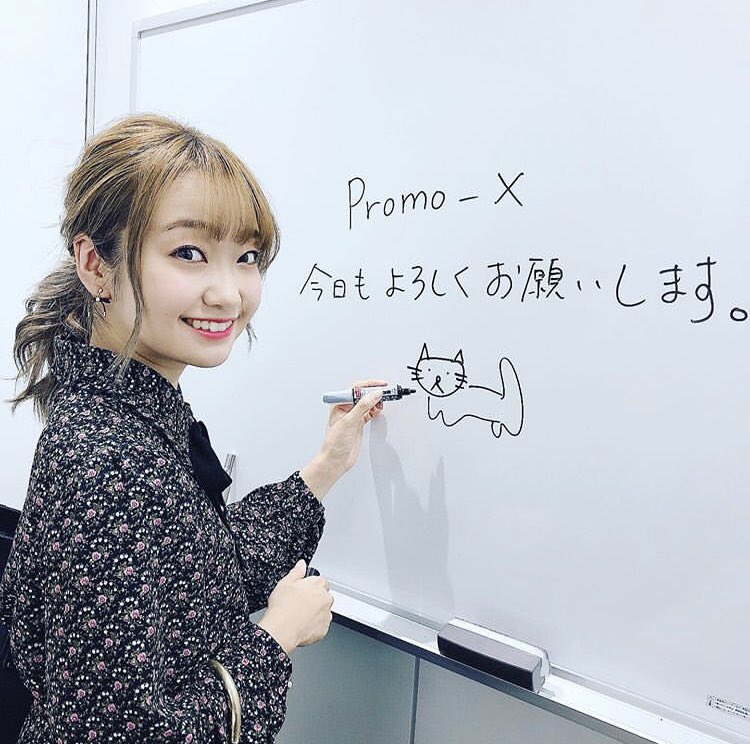 Promo-X
今日もよろしくお願いします。